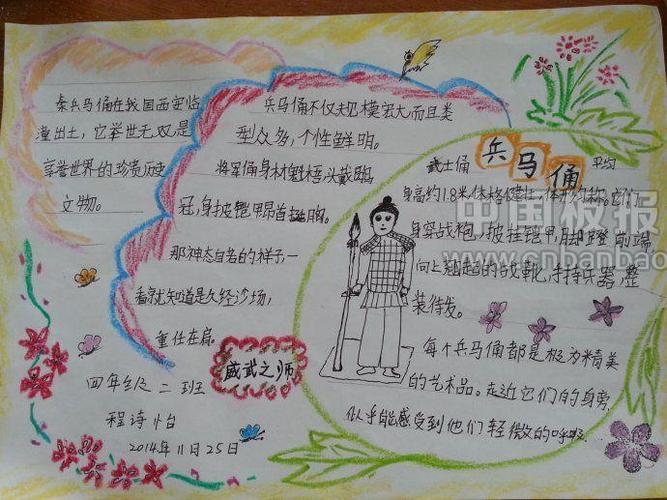 秦兵马俑在我国西安临
潼出土，它举世无双，是
享誉世界的珍贵历史
文物。
兵马俑不仅规模宏大，而且类
型众多，个性鲜明。
将军俑身材魁梧，头戴鹖
冠，身披铠甲，昂首挺胸。
那神态自若的样子一
看就知道是久经沙场，
重任在肩。
威武之师
四年级二班
程诗怡
2014年11月25日
兵马俑
武士俑平均
身高约1.8米，体格健壮，体形匀称。它们
身穿战袍，披挂铠甲，脚蹬前端
向上翘起的战靴，手持兵器，整
装待发。
每个兵马俑都是极为精美
的艺术品。走近它们的身旁，
似乎能感受到他们轻微的呼吸
中国板报
www.cnbanbao